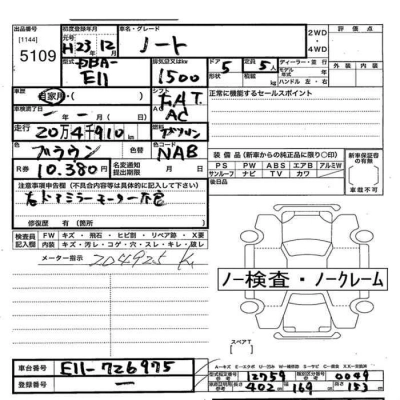 出品番号 [1144] 5109
初度登録年月 元号 H23.12月
車名・グレード ノート
2WD・4WD
評価点
型式 DBA-E11
排気量又はkw 1500
ドア 5
定員 5人
形状 積載 kg
ディーラー・並行
モデル年式
ハンドル 左・右
外装 内装
車歴 自家用
シフト FAT
AC
正常に機能するセールスポイント
車検満了日 ー ー
走行 20万4千910km
燃料 ガソリン
色 ブラウン
色コード NAB
装備(新車からの純正品に限り○印)
PS PW ABS エアB アルミW
サンルーフ ナビ TV カワ
新車保証書の有無
有 無
R券 10.380円
名変通知提出期限
後日品
車載不可
注意事項申告欄(不具合具体的に記入して下さい)
右ドアミラーモーター不良
修復歴(有 無)箇所
検査員記入欄
FW キズ・飛石・ヒビ割・リペア跡・X要
内装 キズ・汚レ・コゲ・穴・スレ・キレ・破レ
メーター指示 204925 K
ノー検査・ノークレーム
スペアT
車台番号 E11-726975
登録番号 ー
A-キズ E-エクボ U-凹み W-補修跡 S-サビ C-腐食 XX-交換済
型式指定番号 12759
類別区分番号 0049
長さ 402cm
幅 169
高さ 153